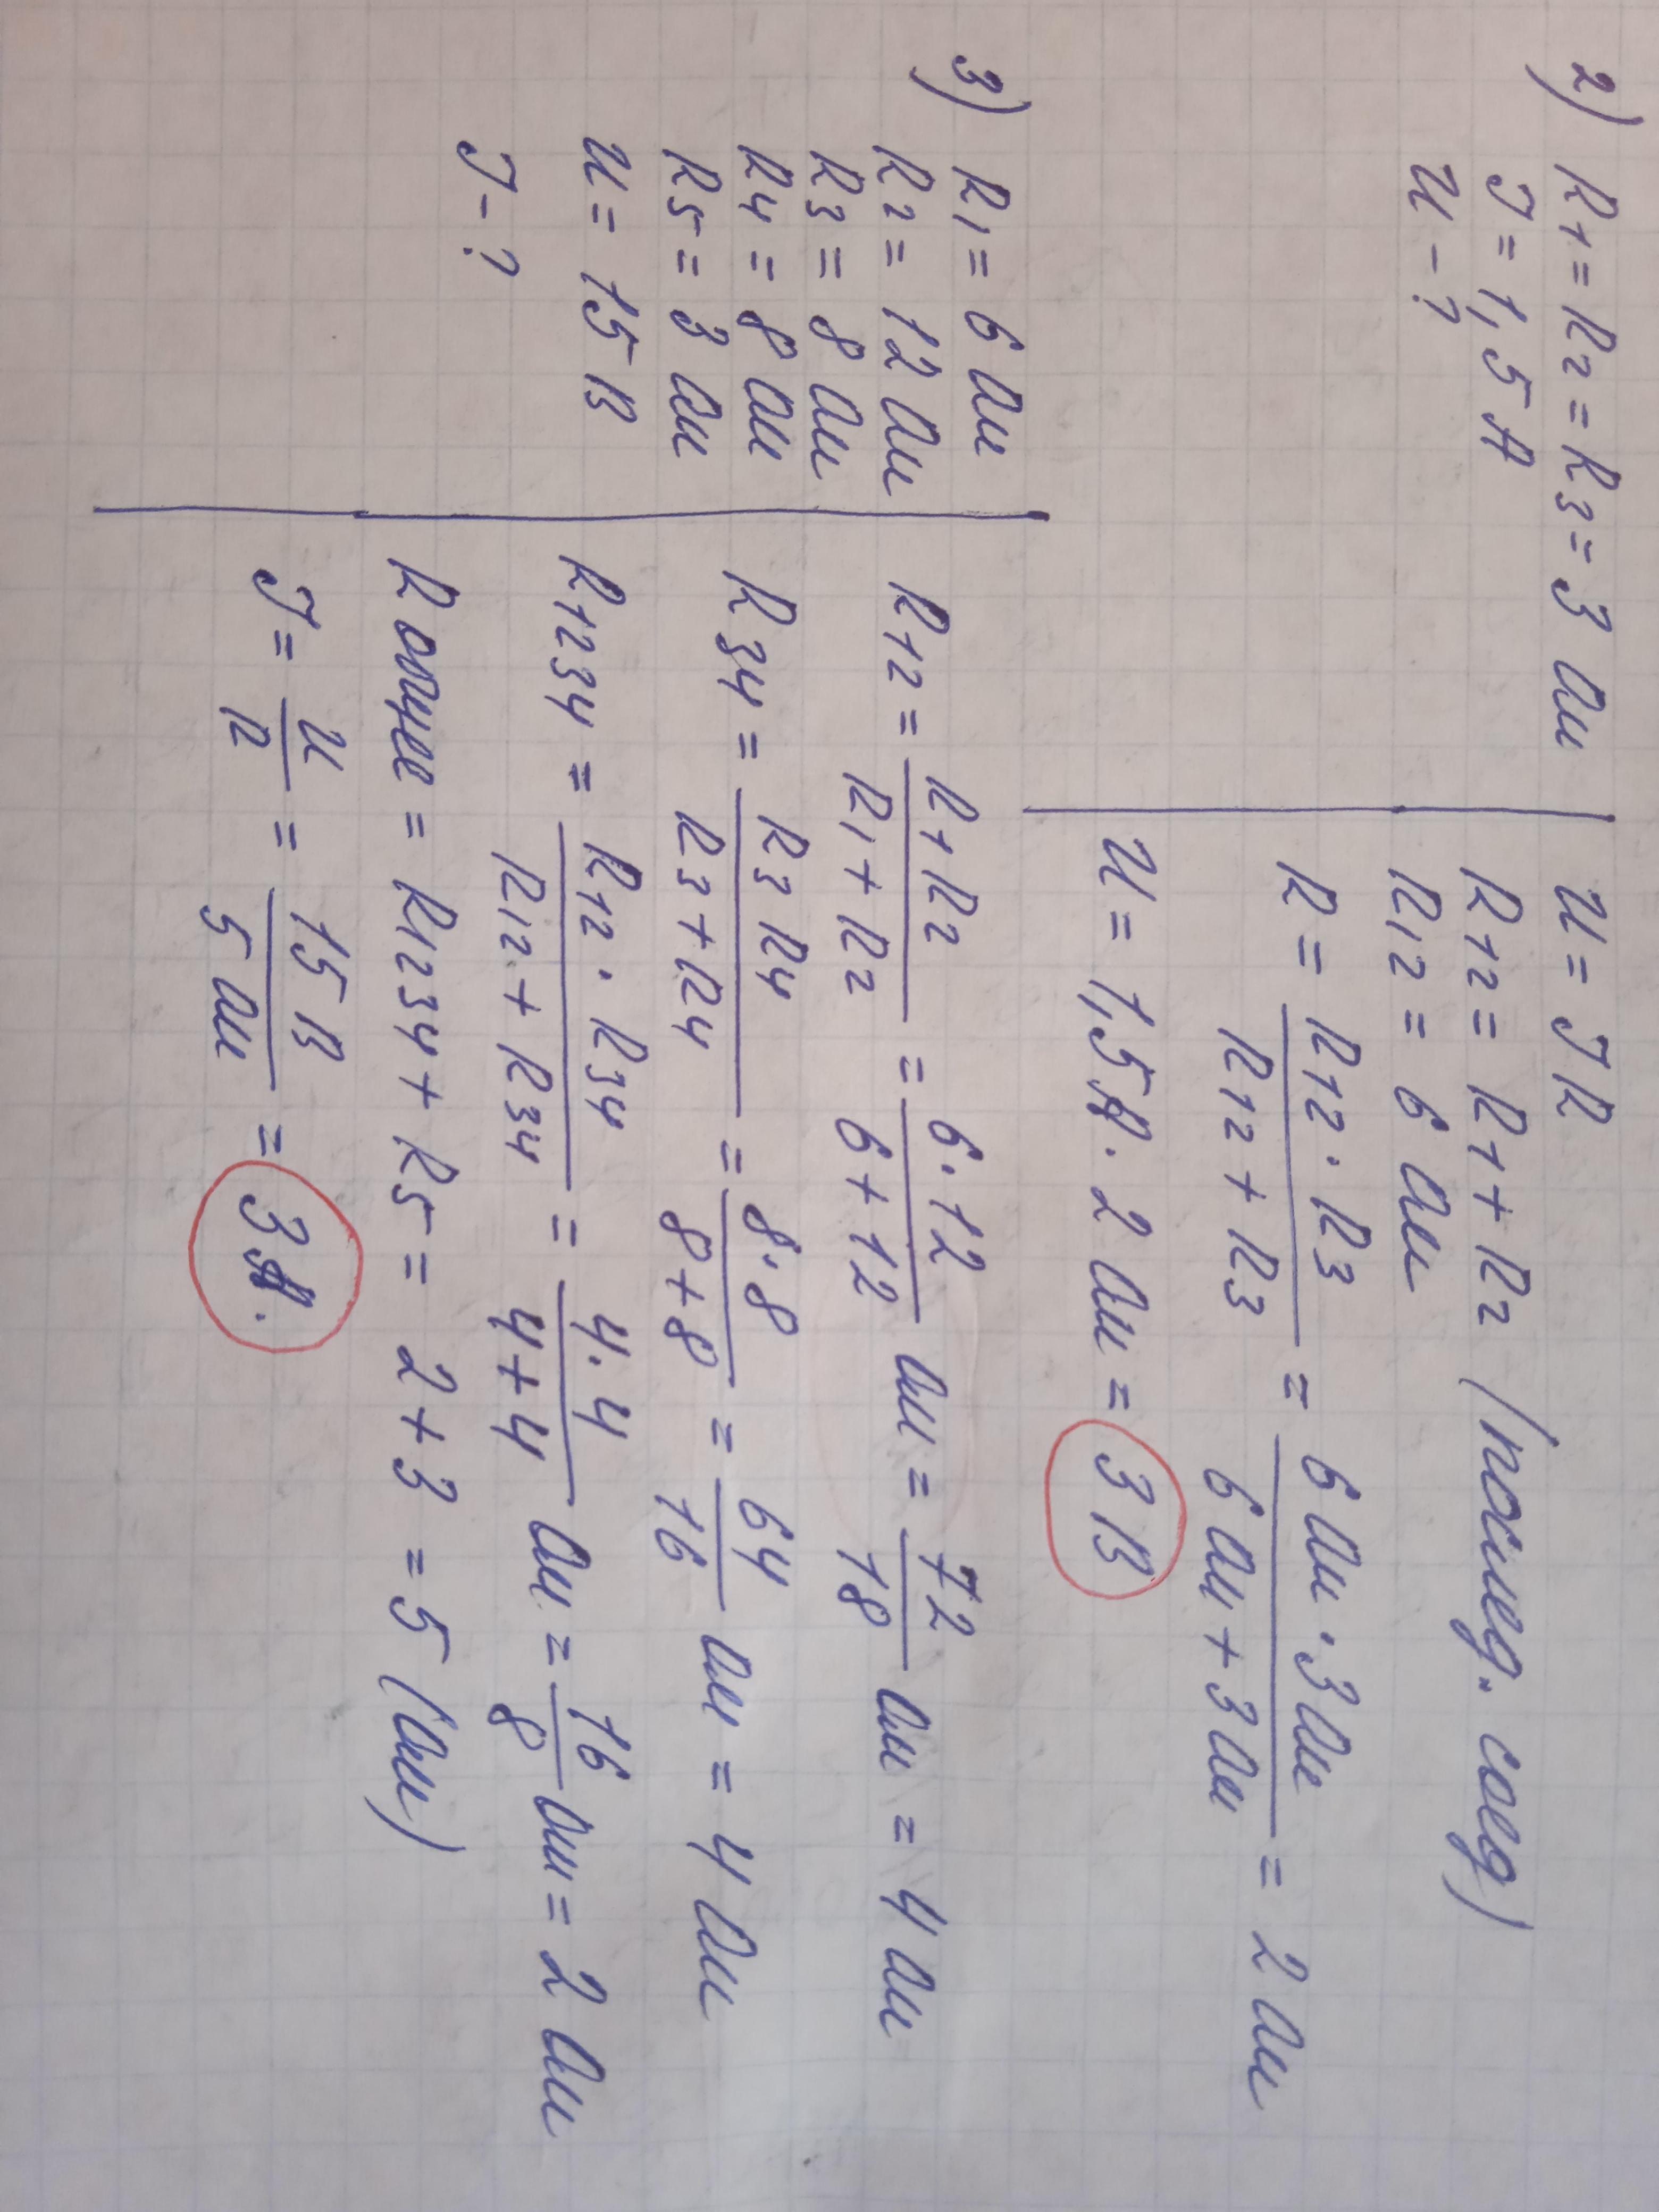 2) R1 = R2 = R3 = 3 Ом
J = 1,5 А
U - ?
U = JR
R12 = R1 + R2 (послед. соед)
R12 = 6 Ом
R = R12 · R3 / R12 + R3 = 6 Ом · 3 Ом / 6 Ом + 3 Ом = 2 Ом
U = 1,5А · 2 Ом = 3 В
3) R1 = 6 Ом
R2 = 12 Ом
R3 = 8 Ом
R4 = 8 Ом
R5 = 3 Ом
U = 15 В
J - ?
R12 = R1 R2 / R1 + R2 = 6·12 / 6+12 Ом = 72 / 18 Ом = 4 Ом
R34 = R3 R4 / R3 + R4 = 8·8 / 8+8 = 64 / 16 Ом = 4 Ом
R1234 = R12 · R34 / R12 + R34 = 4·4 / 4+4 Ом = 16 / 8 Ом = 2 Ом
R общее = R1234 + R5 = 2 + 3 = 5 (Ом)
J = U / R = 15 В / 5 Ом = 3А.